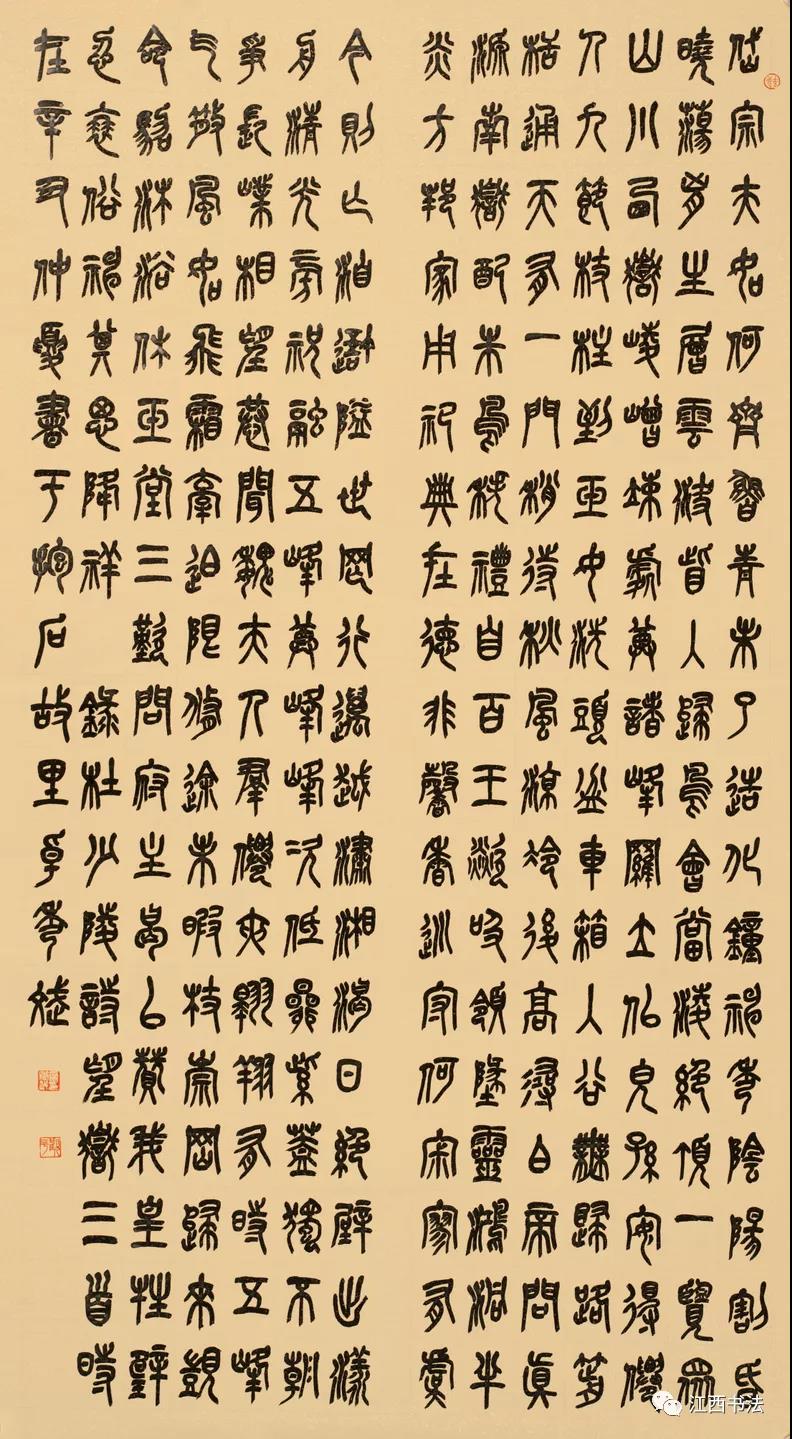 岱宗夫如何齊魯青未了造化鐘神秀陰陽割昏
曉蕩胸生層雲決眥入歸鳥會當凌絕頂一覽眾
山小西嶽崚嶒竦處尊諸峰羅立似兒孫安得仙
人九節杖拄到玉女洗頭盆車箱入谷無歸路箭
栝通天有一門稍待秋風涼冷後高尋白帝問真
源南嶽配朱鳥秩禮自百王欻吸領地靈鴻洞半
炎方邦家用祀典在德非馨香巡守何寂寥有虞
今則亡洎吾隘世網行邁越瀟湘渴日絕壁出漾
舟清光旁祝融五峰尊峰峰次低昂紫蓋獨不朝
爭長嶫相望恭聞魏夫人群仙夾翱翔有時五峰
氣散風如飛霜牽迫限修途未暇杖崇岡歸來覬
命駕沐浴休玉堂三歎問府主曷以贊我皇牲璧
忍衰俗神其思降祥 錄杜少陵詩望嶽三首時
在辛丑仲夏書于石故里
江西书法